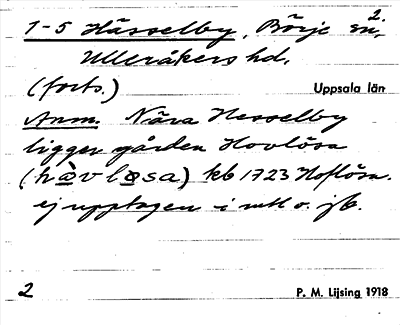 1-5 Hässelby, Börje sn, 2.
Ulleråkers hd.
(forts.) Uppsala län
Anm. Nära Hesselby
ligger gården Hovlösa
(hòvløsa) kb 1723 Hoflösa.
ej upptagen i mtl o. jb.
2 P. M. Lijsing 1918